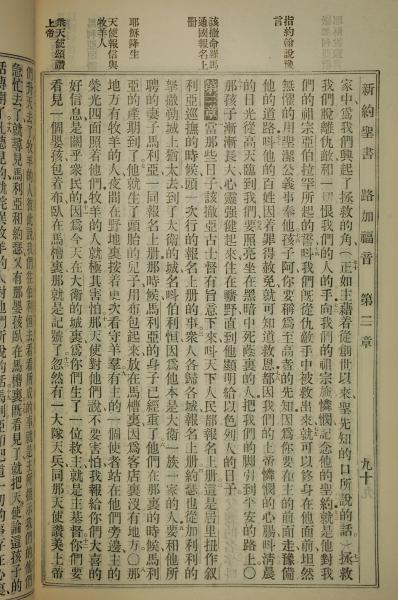 新約聖書　路加福音　第二章　九十九
家中爲我們興起了拯救的角（正如主藉着從創世以來聖先知的口所說的話）拯救
我們脫離仇敵和一切恨我們的人的手向我們的祖宗施憐憫記念他的聖約就是他對我
們的祖宗亞伯拉罕所起的誓呌我們旣從仇敵手中被救出來就可以終身在他面前坦然
無懼的用聖潔公義事奉他孩子阿你要稱爲至高者的先知因爲你要在主的前面走豫備
他的道路呌他的百姓因着罪得赦免就可知道救恩都因我們的上帝憐憫的心腸呌淸晨
的日光從高天臨到我們要照亮坐在黑暗中死蔭裏的人把我們的脚引到平安的路上〇
那孩子漸漸長大心靈强健起來住在曠野直到他顯明給以色列人的日子
第二章　當那些日子該撒亞古士督有旨意下來呌天下人民都報名上册這是居里扭作叙
利亞巡撫的時候頭一次行的報名上册的事衆人各歸各城報名上册約瑟也從加利利的
拏撒勒城上猶太去到了大衛的城名呌伯利恒因他本是大衛一族一家的人要和他所
聘的妻子馬利亞一同報名上册那時候馬利亞的身子已經重了他們在那裏的時候馬利
亞的產期到了他就生了頭胎的兒子用布包起來放在馬槽裏因爲客店裏沒有地方〇那
地方有牧羊的人夜間在野地裏按着更次看守羊羣有主的一個使者站在他們旁邊主的
榮光四面照着他們牧羊的人就極其害怕那天使對他們說不要害怕我報給你們大喜的
好信息是關乎衆民的因爲今天在大衛的城裏爲你們生了一位救主就是主基督你們要
看見一個嬰孩包着布臥在馬槽裏那就是記號了忽然有一大隊天兵同那天使讚美上帝
指約翰說豫
言
該撒命羅馬
通國報名上
册
耶穌降生
天使報信與
牧羊人
衆天使頌讚
上帝